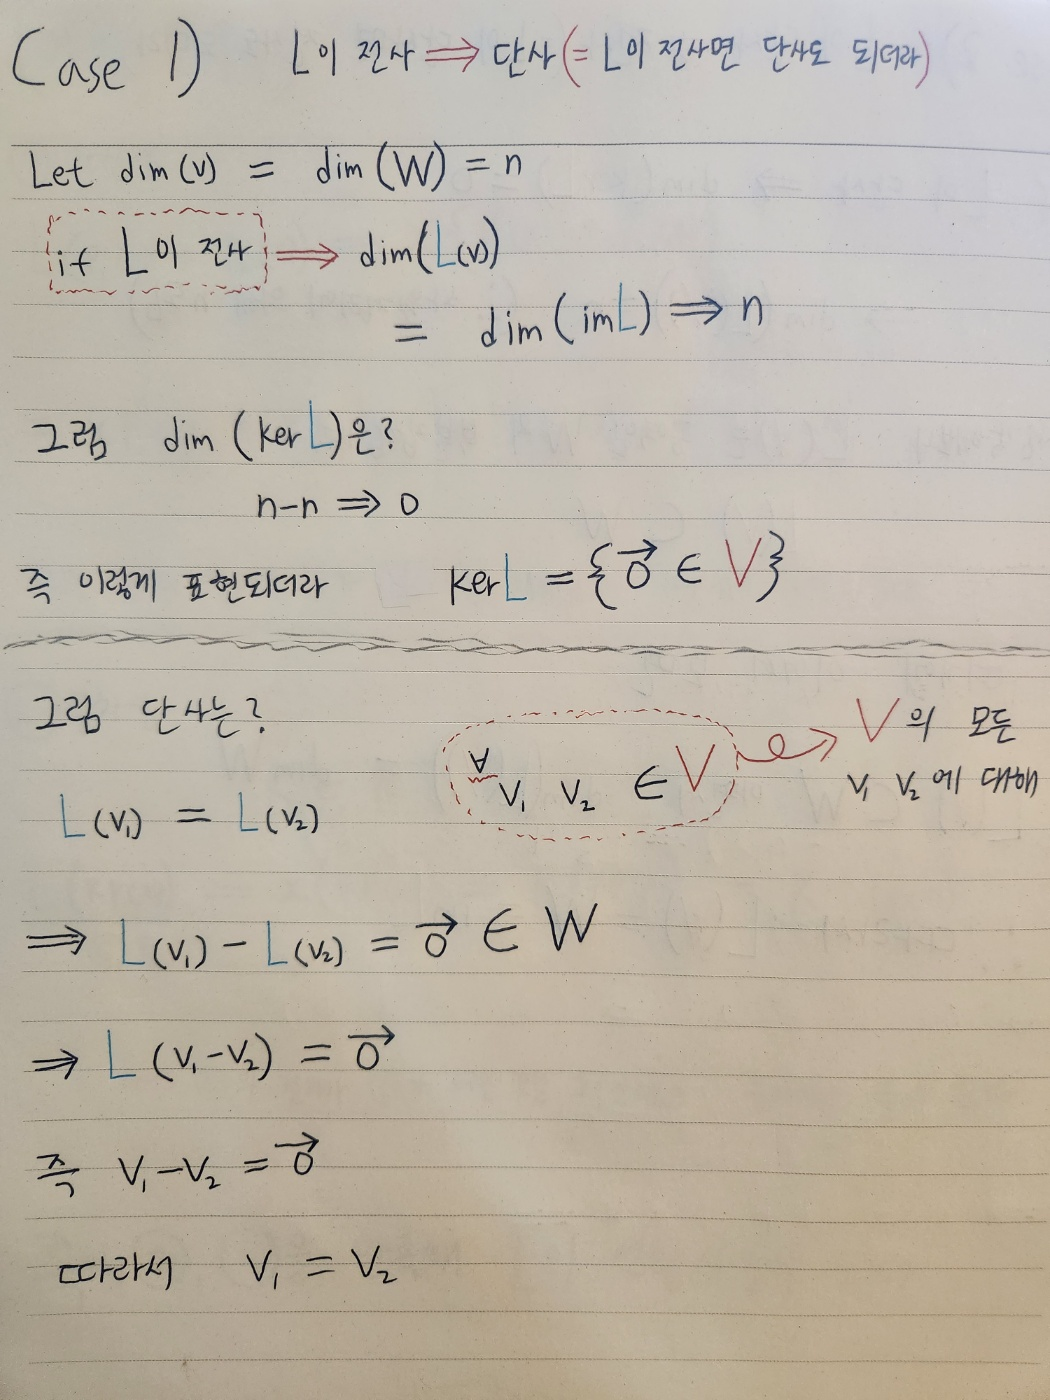 Case 1) L이 전사 ⟹ 단사 (= L이 전사면 단사도 되더라)
Let dim(V) = dim(W) = n
if L이 전사 ⟹ dim(L(V))
= dim(imL) ⟹ n
그럼 dim(kerL)은?
n-n ⟹ 0
즉 이렇게 표현되더라 kerL = {0⃗ ∈ V}
그럼 단사는?
∀ v₁ v₂ ∈ V
V의 모든
v₁ v₂에 대해
L(v₁) = L(v₂)
⟹ L(v₁) - L(v₂) = 0⃗ ∈ W
⟹ L(v₁-v₂) = 0⃗
즉 v₁-v₂ = 0⃗
따라서 v₁ = v₂